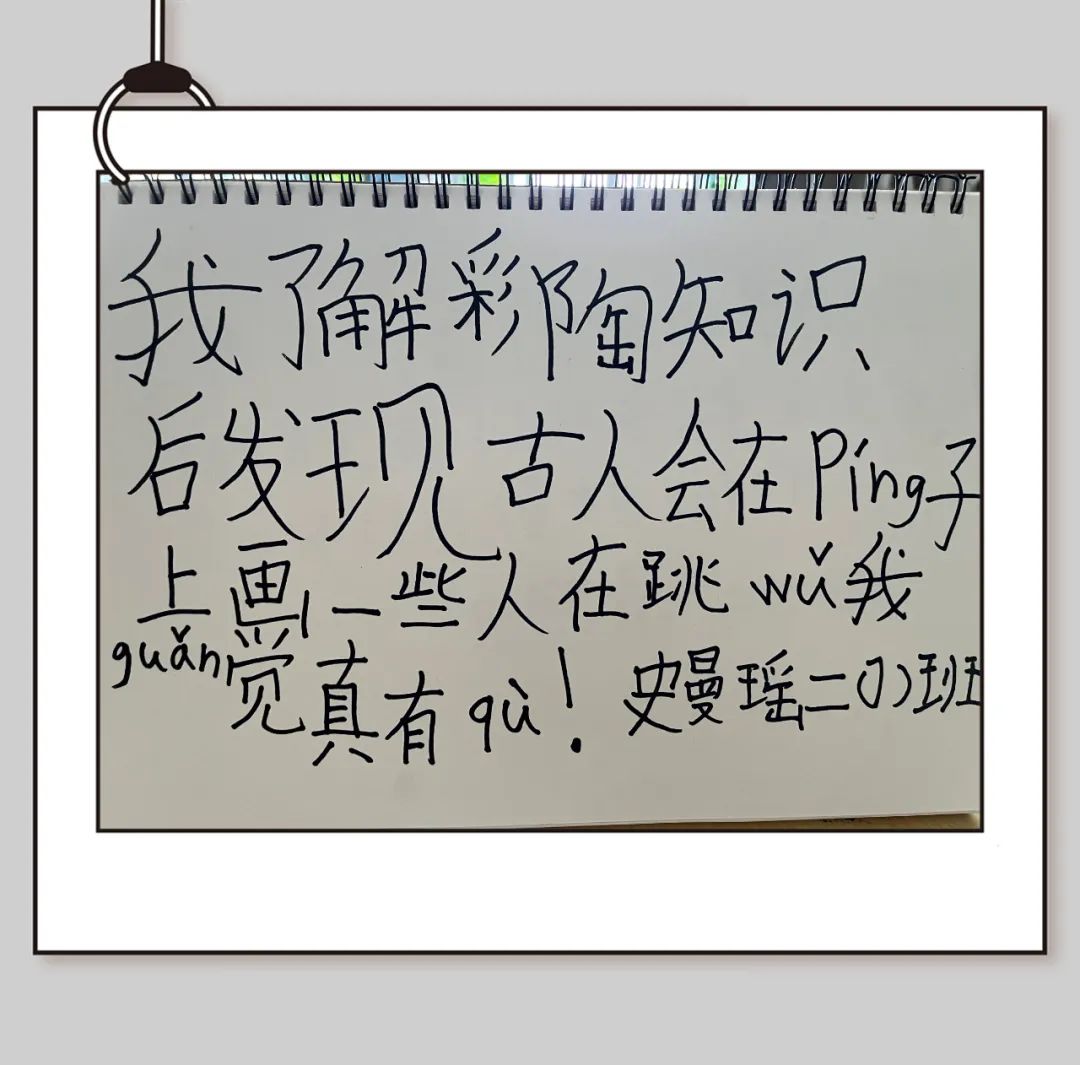 我了解彩陶知识
后发现古人会在píng子
上画一些人在跳wǔ我
guǎn觉真有qù！史曼瑶二(1)班